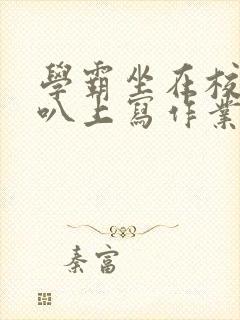 學霸坐在校
叭上寫作業
秦富